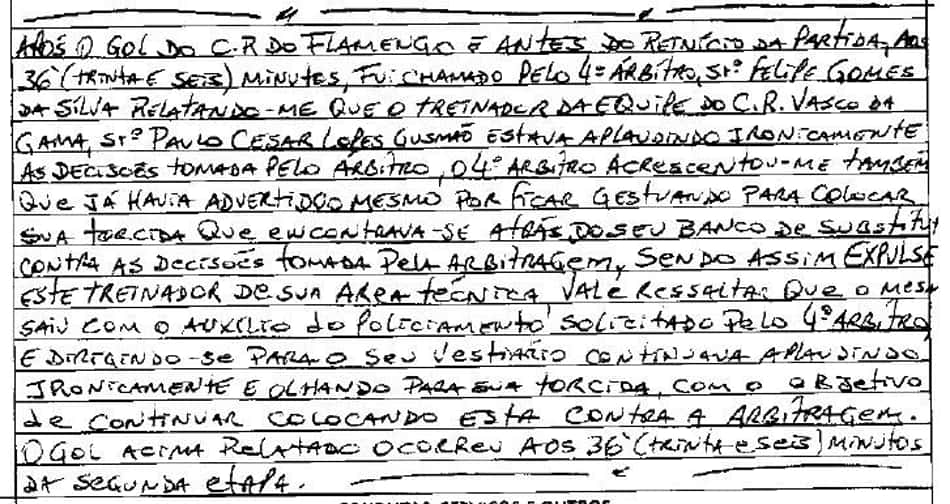 APÓS O GOL DO C.R DO FLAMENGO E ANTES DO REINÍCIO DA PARTIDA, AOS
36' (TRINTA E SEIS) MINUTES, FUI CHAMADO PELO 4º ÁRBITRO, Srº FELIPE GOMES
DA SILVA RELATANDO-ME QUE O TREINADOR DA EQUIPE DO C.R. VASCO DA
GAMA, Srº PAULO CESAR LOPES GUSMÃO ESTAVA APLAUDINDO IRONICAMENTE
AS DECISÕES TOMADA PELO ÁRBITRO, O 4º ARBITRO ACRESCENTOU-ME TAMBÉM
QUE JÁ HAVIA ADVERTIDO O MESMO POR FICAR GESTUANDO PARA COLOCAR
SUA TORCIDA QUE ENCONTRAVA-SE ATRÁS DO SEU BANCO DE SUBSTITUT
CONTRA AS DECISÕES TOMADA PELA ARBITRAGEM, SENDO ASSIM EXPULSE
ESTE TREINADOR DE SUA AREA TÉCNICA, VALE RESSALTAR QUE O MESM
SAIU COM O AUXÍLIO DO POLICIAMENTO SOLICITADO PELO 4º ARBITRO
E DIRIGINDO-SE PARA O SEU VESTIÁRIO CONTINUAVA APLAUDINDO
IRONICAMENTE E OLHANDO PARA SUA TORCIDA, COM O OBJETIVO
DE CONTINUAR COLOCANDO ESTA CONTRA A ARBITRAGEM.
O GOL ACIMA RELATADO OCORREU AOS 36' (TRINTA E SEIS) MINUTOS
DA SEGUNDA ETAPA.